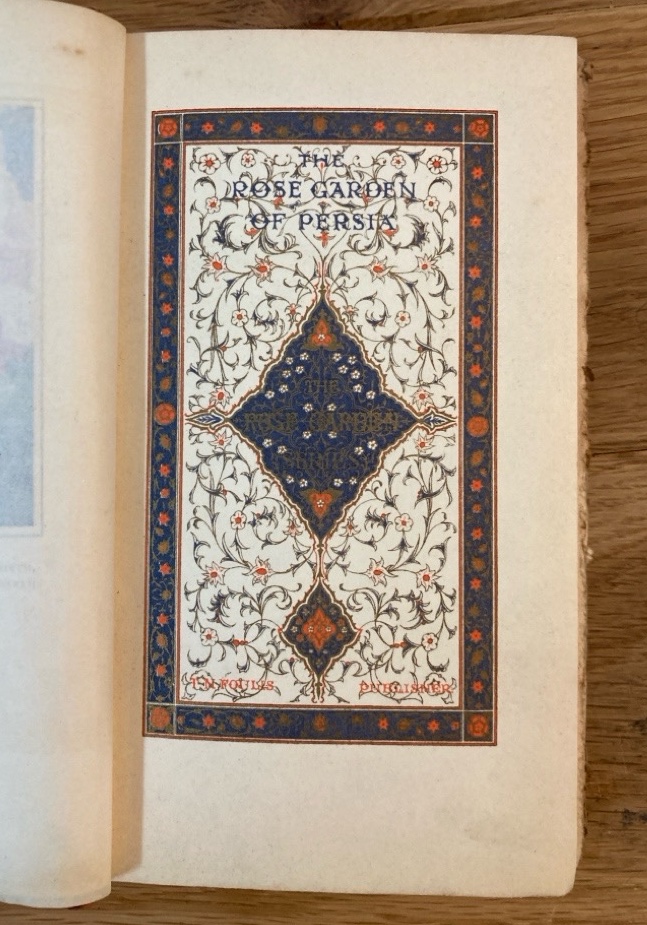 THE
ROSE GARDEN
OF PERSIA
THE
ROSE GARDEN
T.N. FOULIS PUBLISHER